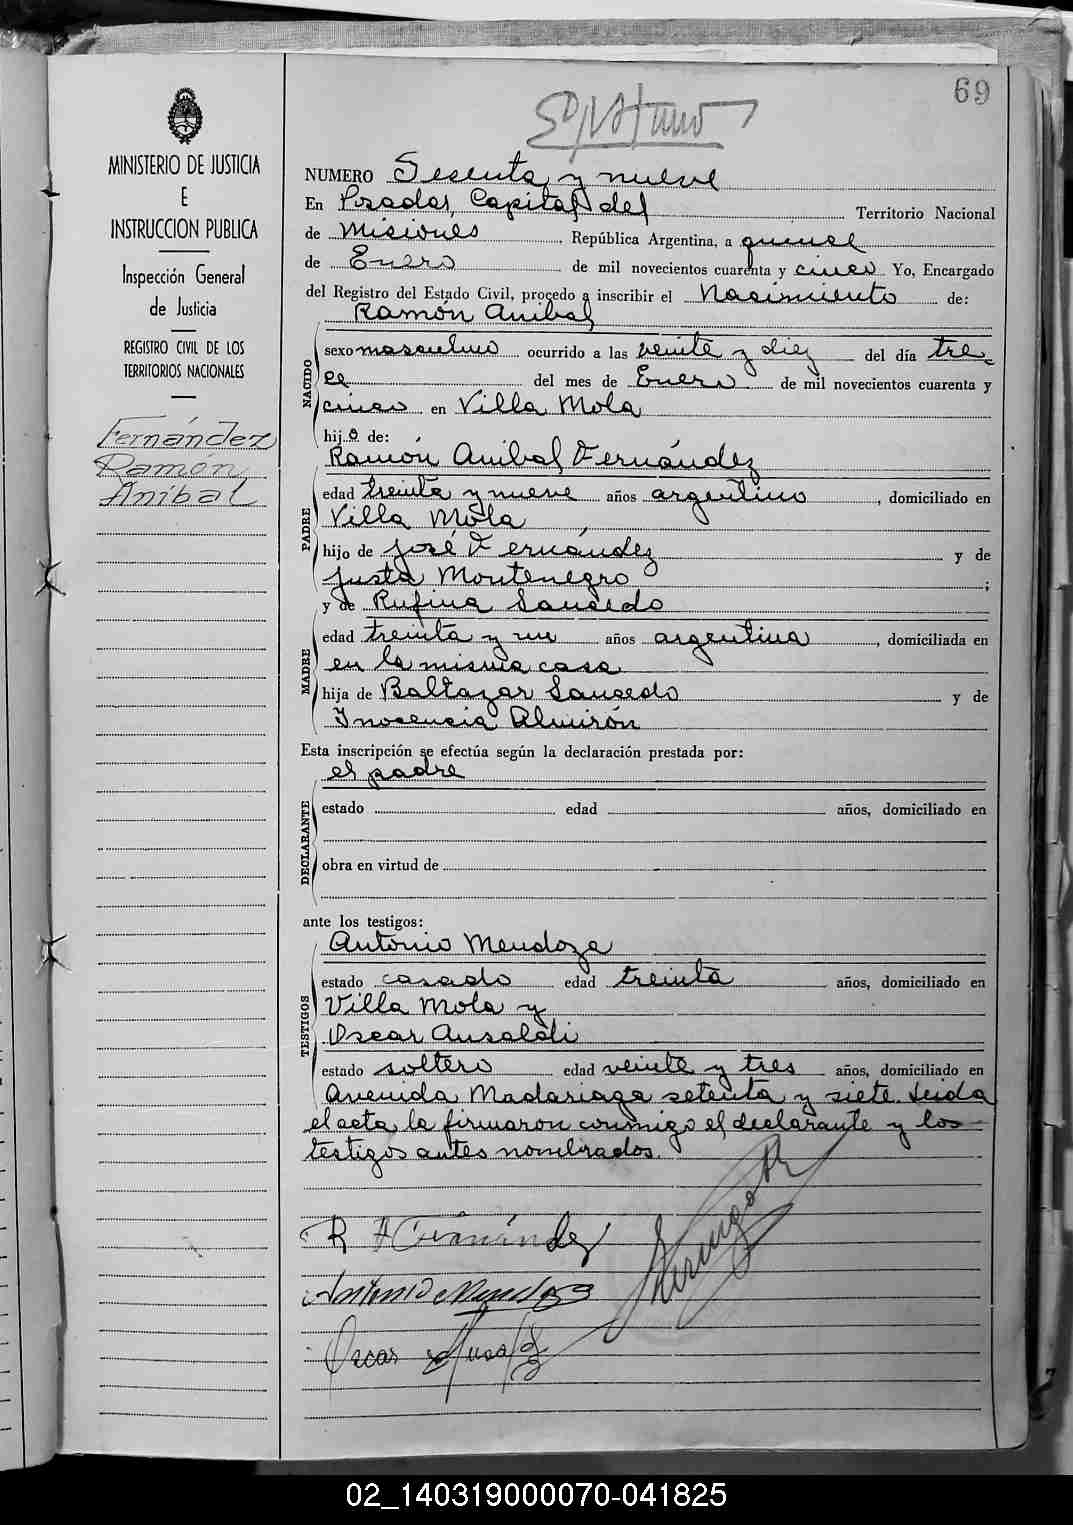 69
MINISTERIO DE JUSTICIA
E
INSTRUCCION PUBLICA
Inspección General
de Justicia
REGISTRO CIVIL DE LOS
TERRITORIOS NACIONALES
Fernández
Ramón
Aníbal
NUMERO Sesenta y nueve
En Posadas, Capital del Territorio Nacional
de Misiones República Argentina, a quince
de Enero de mil novecientos cuarenta y cinco Yo, Encargado
del Registro del Estado Civil, procedo a inscribir el Nacimiento de:
Ramón Anibal
NACIDO
sexo masculino ocurrido a las veinte y diez del día tre-
ce del mes de Enero de mil novecientos cuarenta y
cinco en Villa Mola
hijo de:
Ramón Anibal Fernández
PADRE
edad treinta y nueve años argentino, domiciliado en
Villa Mola
hijo de José Fernández y de
Justa Montenegro ;
y de Rufina Saucedo
MADRE
edad treinta y un años argentina, domiciliada en
en la misma casa
hija de Baltazar Saucedo y de
Inocencia Almirón
Esta inscripción se efectúa según la declaración prestada por:
el padre
DECLARANTE
estado edad años, domiciliado en
obra en virtud de
ante los testigos:
Antonio Mendoza
TESTIGOS
estado casado edad treinta años, domiciliado en
Villa Mola y
Oscar Ansaldi
estado soltero edad veinte y tres años, domiciliado en
Avenida Madariaga setenta y siete. Leida
el acta, la firmaron conmigo el declarante y los
testigos antes nombrados.
R A Fernández
Antonio Mendoza
Oscar
02_140319000070-041825